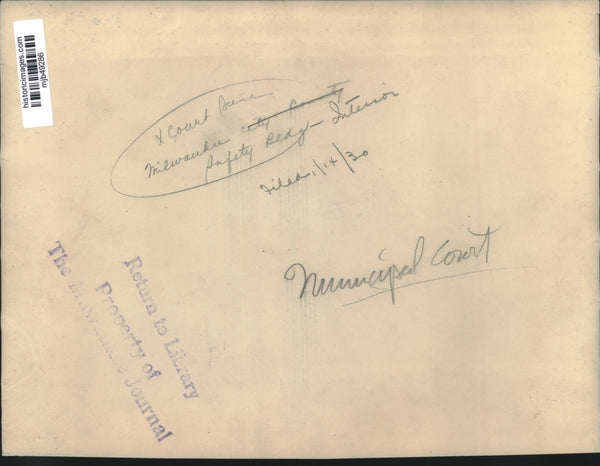 historicimages.com
mjb49286
x Court June
Milwaukee City County
Safety Bldg - Interior
Filed 1/14/30
Municipal Court
Return to Library
Property of
The Milwaukee Journal